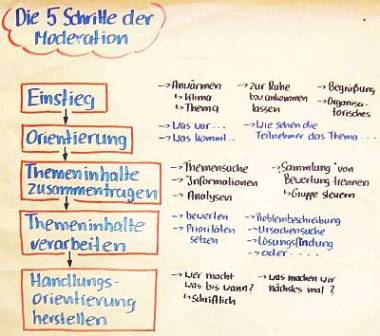 Die 5 Schritte der
Moderation
Einstieg
→ Anwärmen
↳ Klima
↳ Thema
→ zur Ruhe
bzw. ankommen
lassen
→ Begrüßung
→ Organisa-
torisches
Orientierung
→ Was war ...
→ Was kommt ...
→ Wie sehen die
Teilnehmer das Thema ...
Themeninhalte
zusammentragen
→ Themensuche
→ Informationen
→ Analysen
→ "Sammlung" von
Bewertung trennen
↳ Gruppe steuern
Themeninhalte
verarbeiten
→ bewerten
→ Prioritäten
setzen
→ Problembeschreibung
→ Ursachensuche
→ Lösungsfindung
→ oder ...
Handlungs-
orientierung
herstellen
→ wer macht
was bis wann?
↳ Schriftlich
→ was machen wir
nächstes mal?